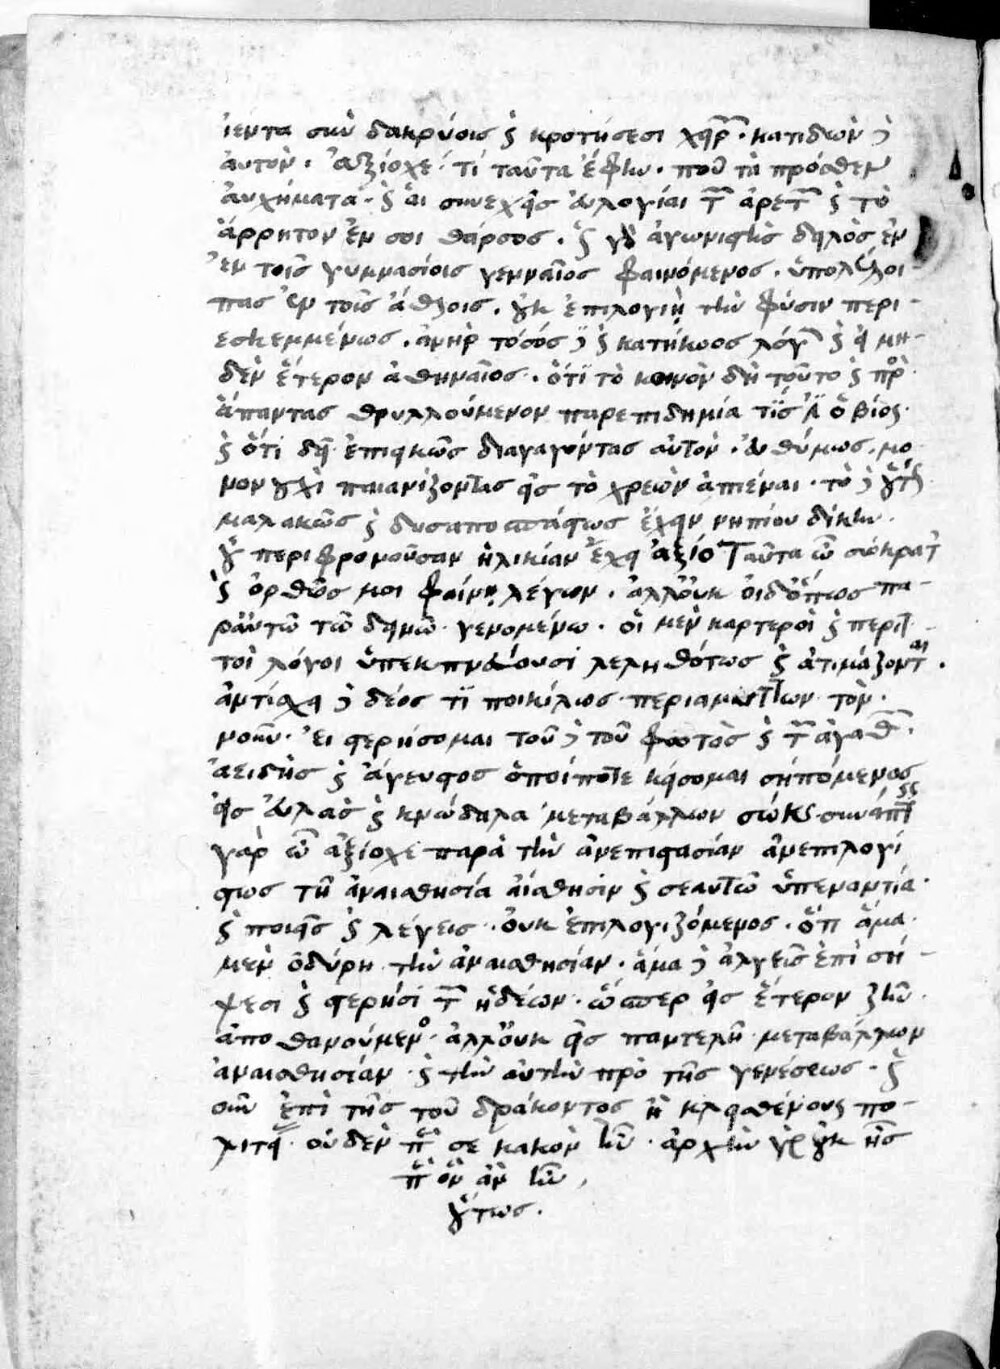 ϊέντα σὺν δακρύοις ϗ κροτήσεσι χειρῶν. κατιδὼν δὲ
αυτὸν. Ἀξίοχε· τί ταῦτα ἔφην. ποῦ τὰ πρόσθεν
ἀυχήματα· ϗ ἁι συνεχεῖς ἐυλογίαι τῶν ἀρετῶν ϗ τὸ
ἄρρητον ἐν σοι θάρσος. ϗ γὰρ ἀγωνιστὴς δειλὸς ἐν
ἐν τοῖς γυμνασίοις γενναῖος φαινόμενος. ὑπολέλοι-
πας ἐν τοῖς ἄθλοις. οὐκ ἐπιλογιῆ τὴν φύσιν περι-
εσκεμμένως. ἀνὴρ τοσόσδε ϗ κατήκοος λόγων ϗ εἰ μη-
δὲν ἕτερον ἀθηναῖος. ὅτι τὸ κοινὸν δὴ τοῦτο ϗ πρὸς
ἅπαντας θρυλλούμενον παρεπιδημία τίς ἐστιν ὁ βίος.
ϗ ὅτι δεῖ ἐπιεικῶς διαγαγόντας αυτὸν. ἐυθύμως. μο-
νον οὐχὶ παιανίζοντας εἰς τὸ χρεὼν ἀπιέναι. τὸ δὲ οὕτως
μαλακῶς ϗ δυσαποσπάστως ἔχειν νηπίου δίκην.
οὐ περιφρονοῦσαν ἡλικίαν ἔχει ἀξίο Ταῦτα ὦ σώκρατες
ϗ ὀρθῶς μοι φαίνη λέγων. ἀλλ᾽ οὐκ οἶδ᾽ ὅπως πα-
ρ᾽ ἀυτῶ τῶ δεινῶ γενομένω. ὁι μὲν καρτεροὶ ϗ περιτ-
τοὶ λόγοι ὑπεκπνέουσι λεληθότως ϗ ἀτιμάζονται.
ἀντίσχει δὲ δέος τι ποικίλως περιαμύττων τὸν
νοῦν. ἐι στερήσομαι τοῦδε τοῦ φωτὸς ϗ τῶν ἀγαθῶν.
ἀειδὴς ϗ ἄγευστος ὁποίποτε κείσομαι σηπόμενος
εἰς ἐυλὰς ϗ κνώδαλα μεταβάλλων σώκρ. συνάπτεις
γὰρ ὦ ἀξίοχε παρὰ τὴν ἀνεπιστασίαν ἀνεπιλογί
στως τῆ ἀναισθησία αἴσθησιν ϗ σεαυτῶ ὑπεναντία.
ϗ ποιεῖς ϗ λέγεις. οὐκ ἐπιλογιζόμενος. ὅτι ἅμα
μὲν ὀδύρη τὴν ἀναισθησίαν. ἅμα δὲ ἀλγεῖς ἐπὶ σή-
ψεσι ϗ στερήσει τῶν ἡδέων. ὥσπερ εἰς ἕτερον ζῆν
ἀποθανούμενος. ἀλλ᾽ οὐκ εἰς παντελῆ μεταβάλλων
ἀναισθησίαν. ϗ τὴν αὐτὴν πρὸ τῆς γενέσεως. ὡς
οὖν ἐπὶ τῆς τοῦ δράκοντος ἢ κλεισθένους πο-
λιτεί. οὐδὲν περὶ σε κακὸν ἦν. ἀρχὴν γὰρ οὐκ ἦς
περὶ ὃν ἂν ἦν.
οὕτως.